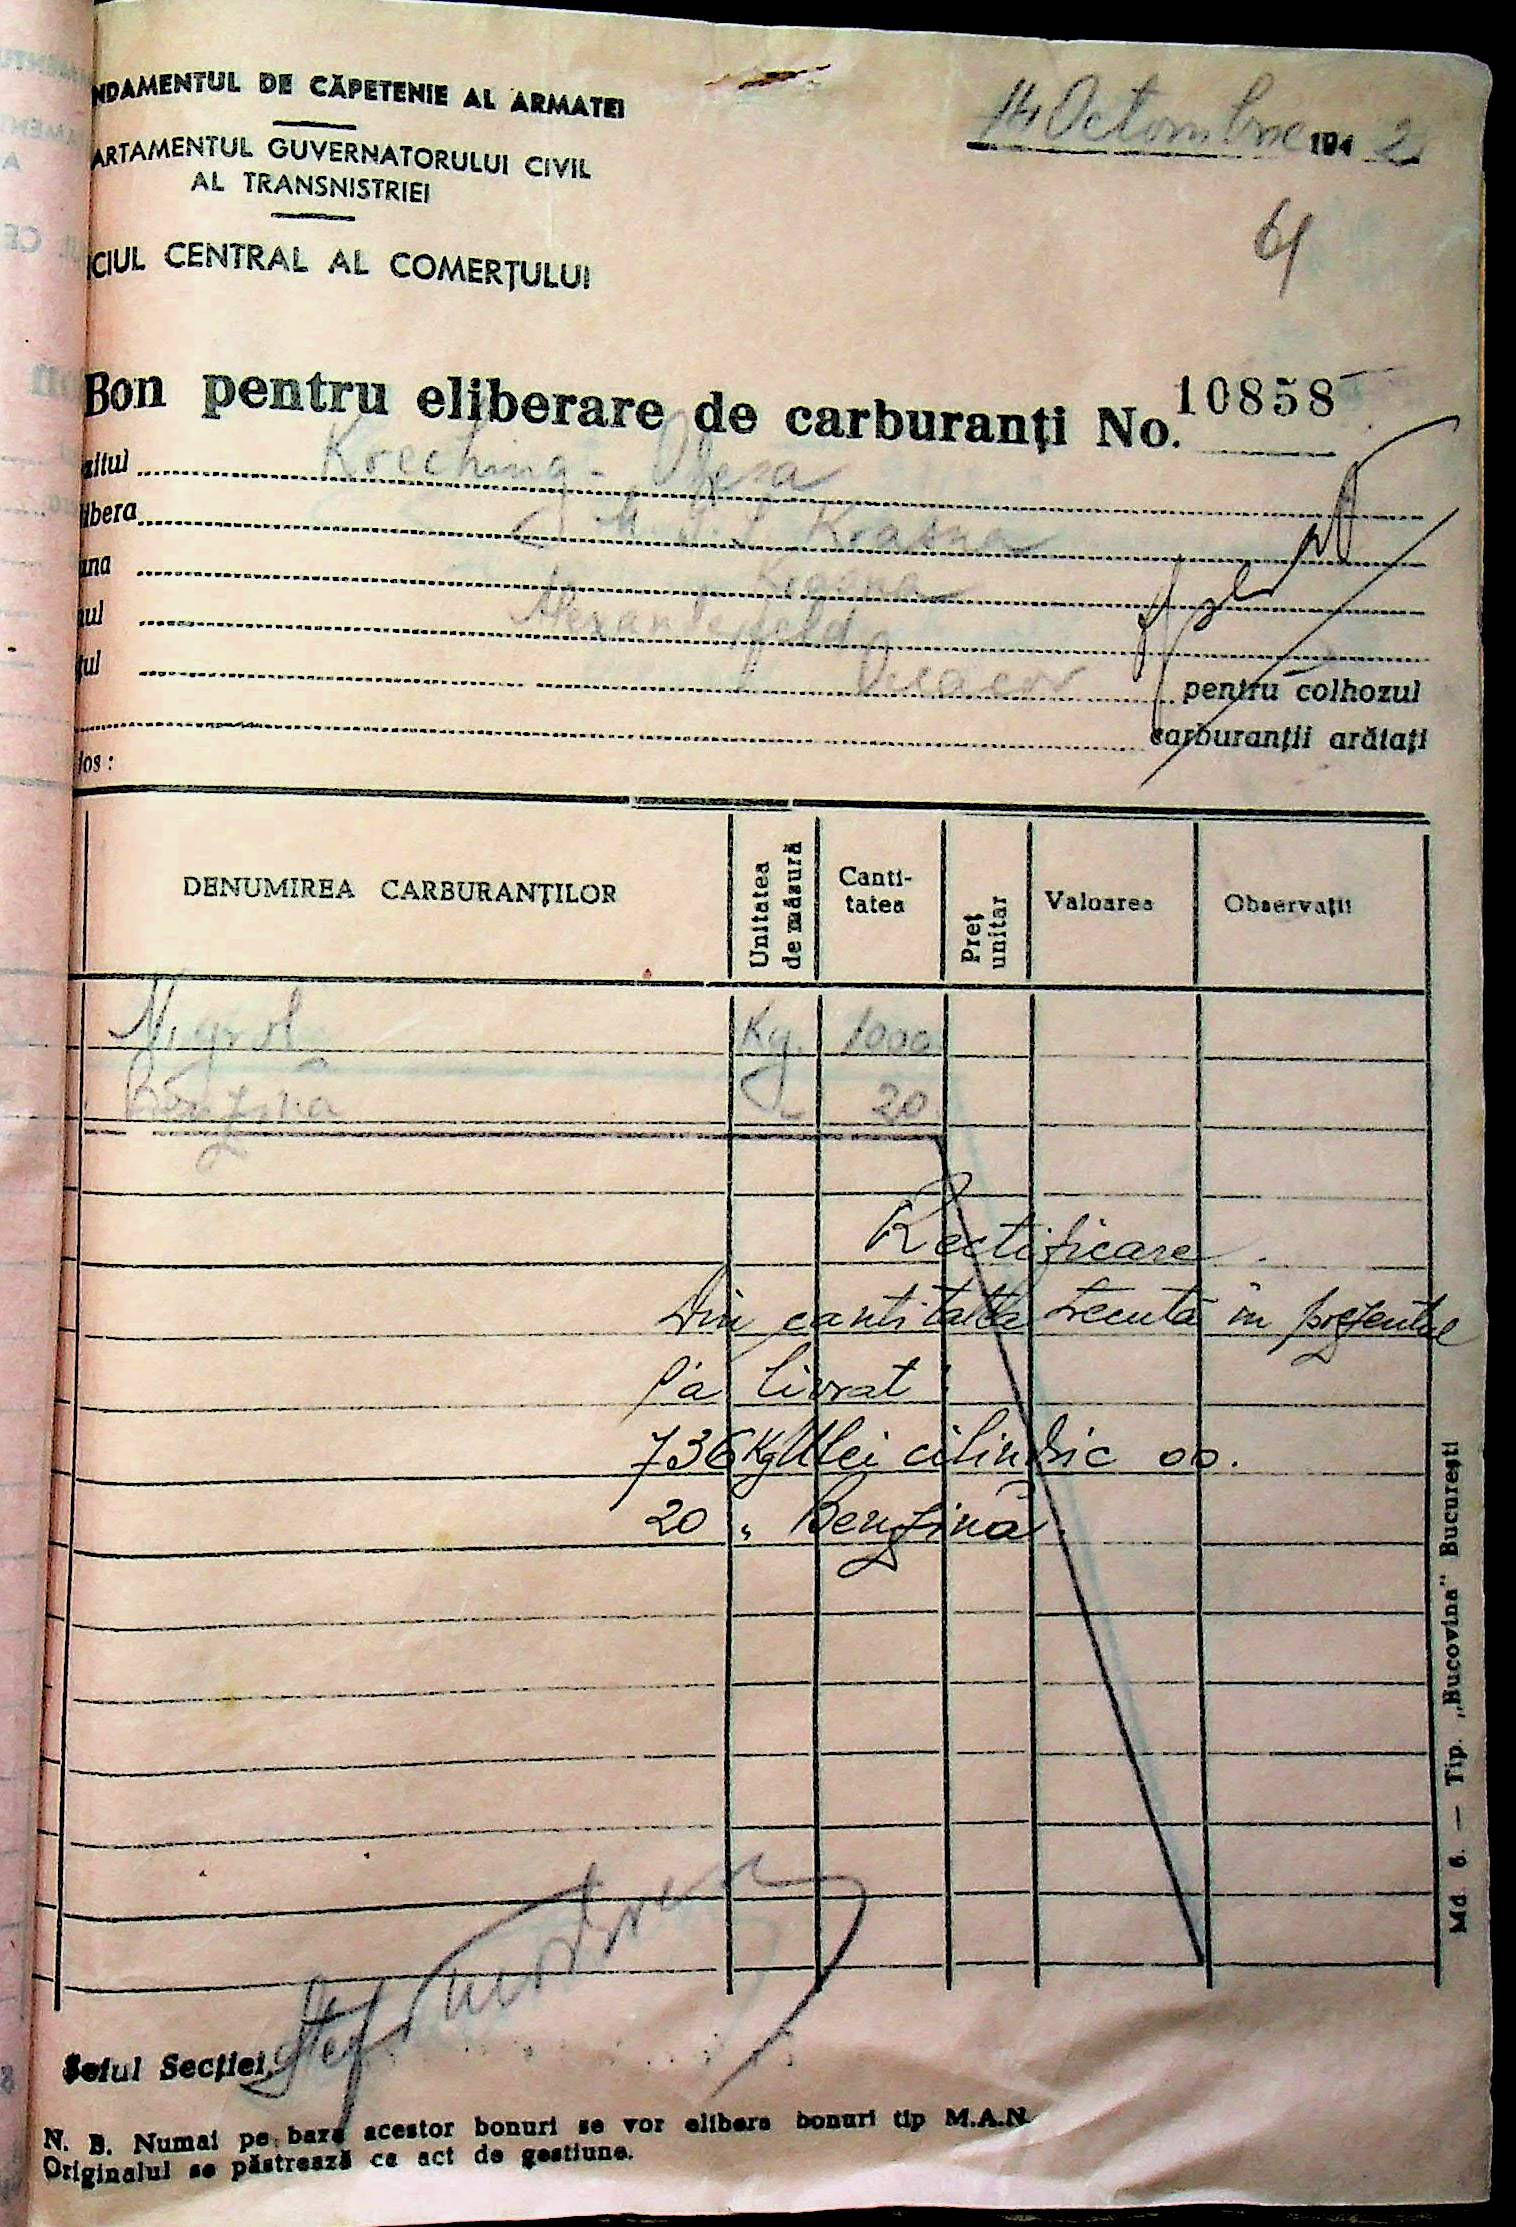 NDAMENTUL DE CĂPETENIE AL ARMATEI
ARTAMENTUL GUVERNATORULUI CIVIL
AL TRANSNISTRIEI
CIUL CENTRAL AL COMERȚULUI
14 Octombrie 1942
61
Bon pentru eliberare de carburanți No. 10858
zitul
libera Krasna
una Krasna
nul
țul pentru colhozul
carburanții arătați
jos:
DENUMIREA CARBURANȚILOR Unitatea de măsură Canti-tatea Preț unitar Valoarea Observații
Nigrol Kg. 1000
Benzină 20
Rectificare.
Din cantitatea trecuta în prezentul
s'a livrat:
736 Kg Ulei cilindric 00.
20 " Benzină.
Șeful Secției,
N. B. Numai pe baza acestor bonuri se vor elibera bonuri tip M.A.N.
Originalul se păstrează ca act de gestiune.
Md. 6. — Tip. „Bucovina" București